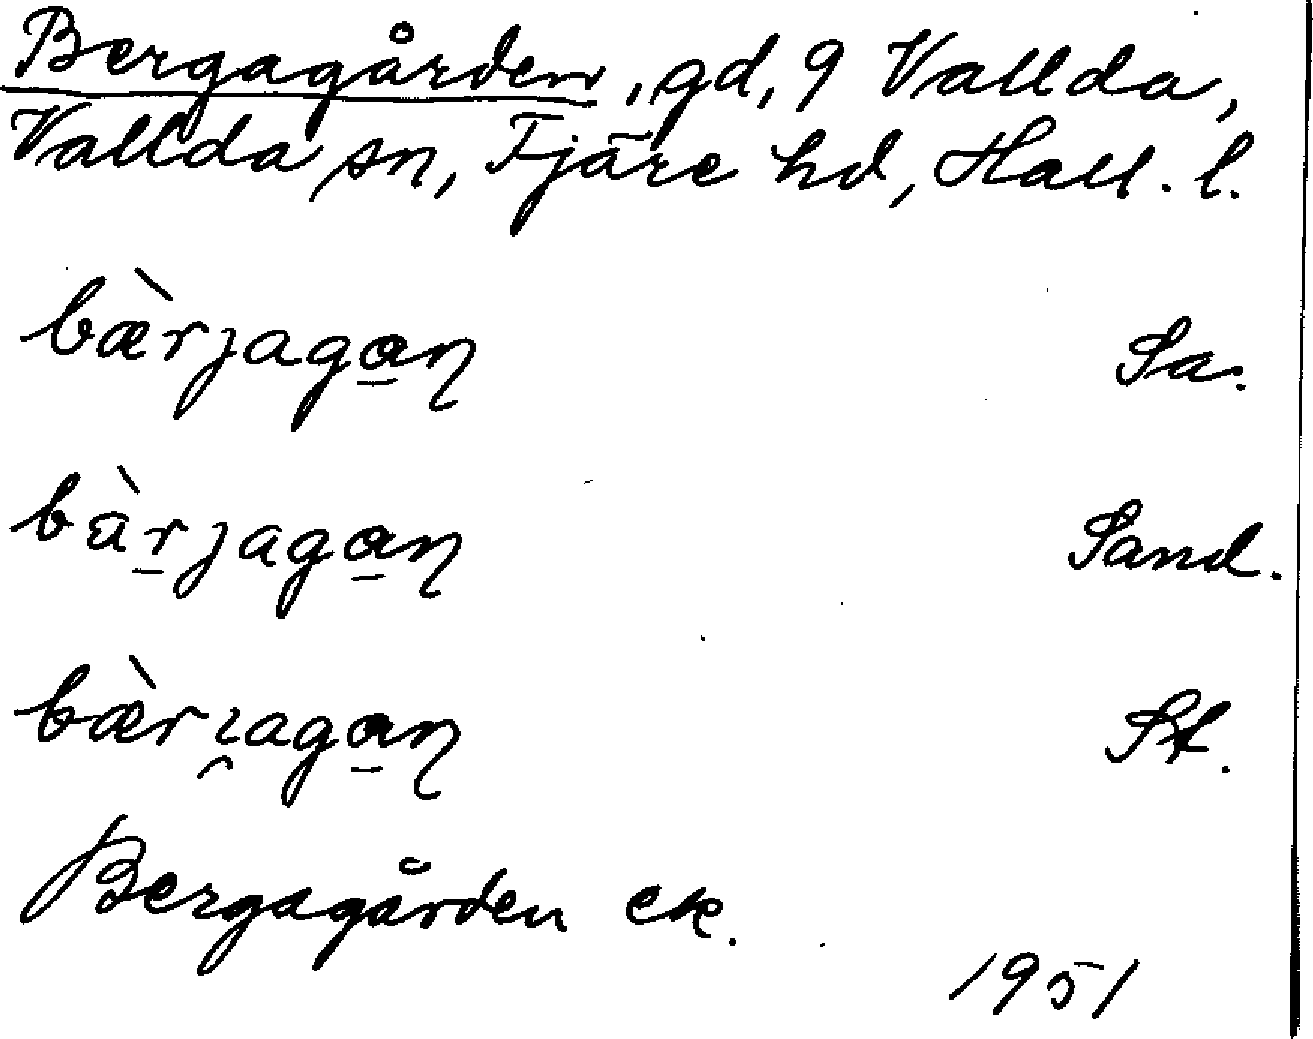 Bergagården, gd, 9 Vallda,
Vallda sn, Fjäre hd, Hall. l.
bæ̀rjaga̲ɳ Sa.
bàr̲jaga̲ɳ Sand.
bæ̀rɿ̯aga̲ɳ St.
Bergagården ek.
1951